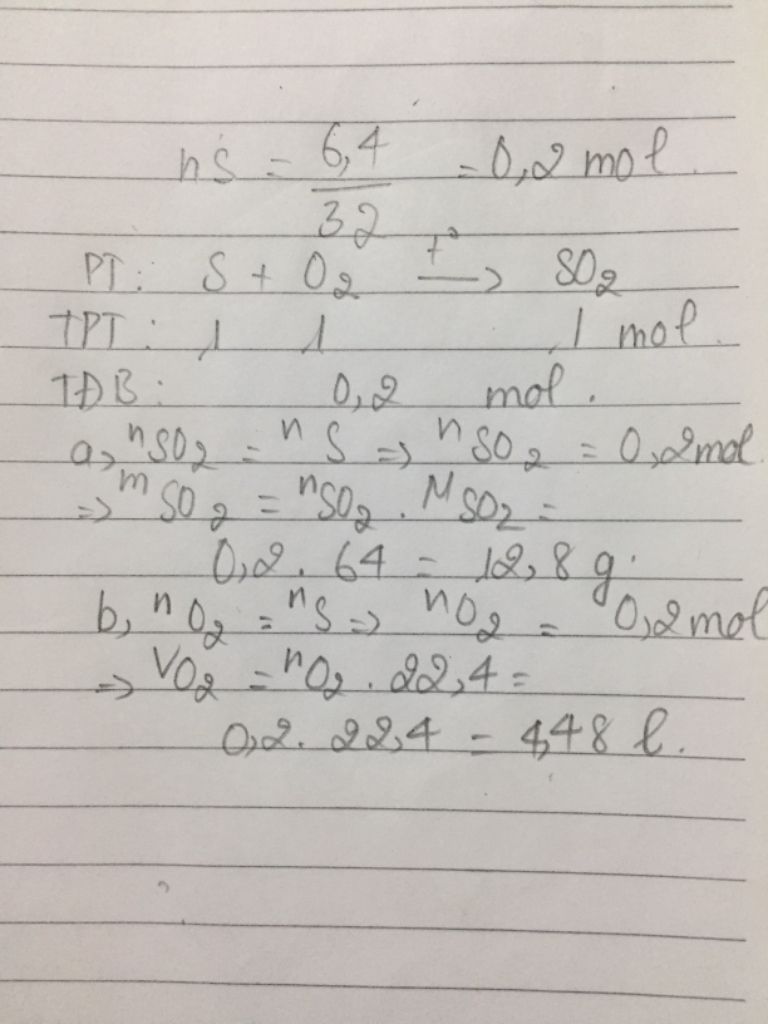 nS = 6,4/32 = 0,2 mol.
PT: S + O₂ —t°→ SO₂
TPT: 1 1 1 mol.
TĐB: 0,2 mol.
a, nSO₂ = nS => nSO₂ = 0,2mol
=> mSO₂ = nSO₂ . MSO₂ =
0,2 . 64 = 12,8 g.
b, nO₂ = nS => nO₂ = 0,2mol
=> VO₂ = nO₂ . 22,4 =
0,2 . 22,4 = 4,48 l.